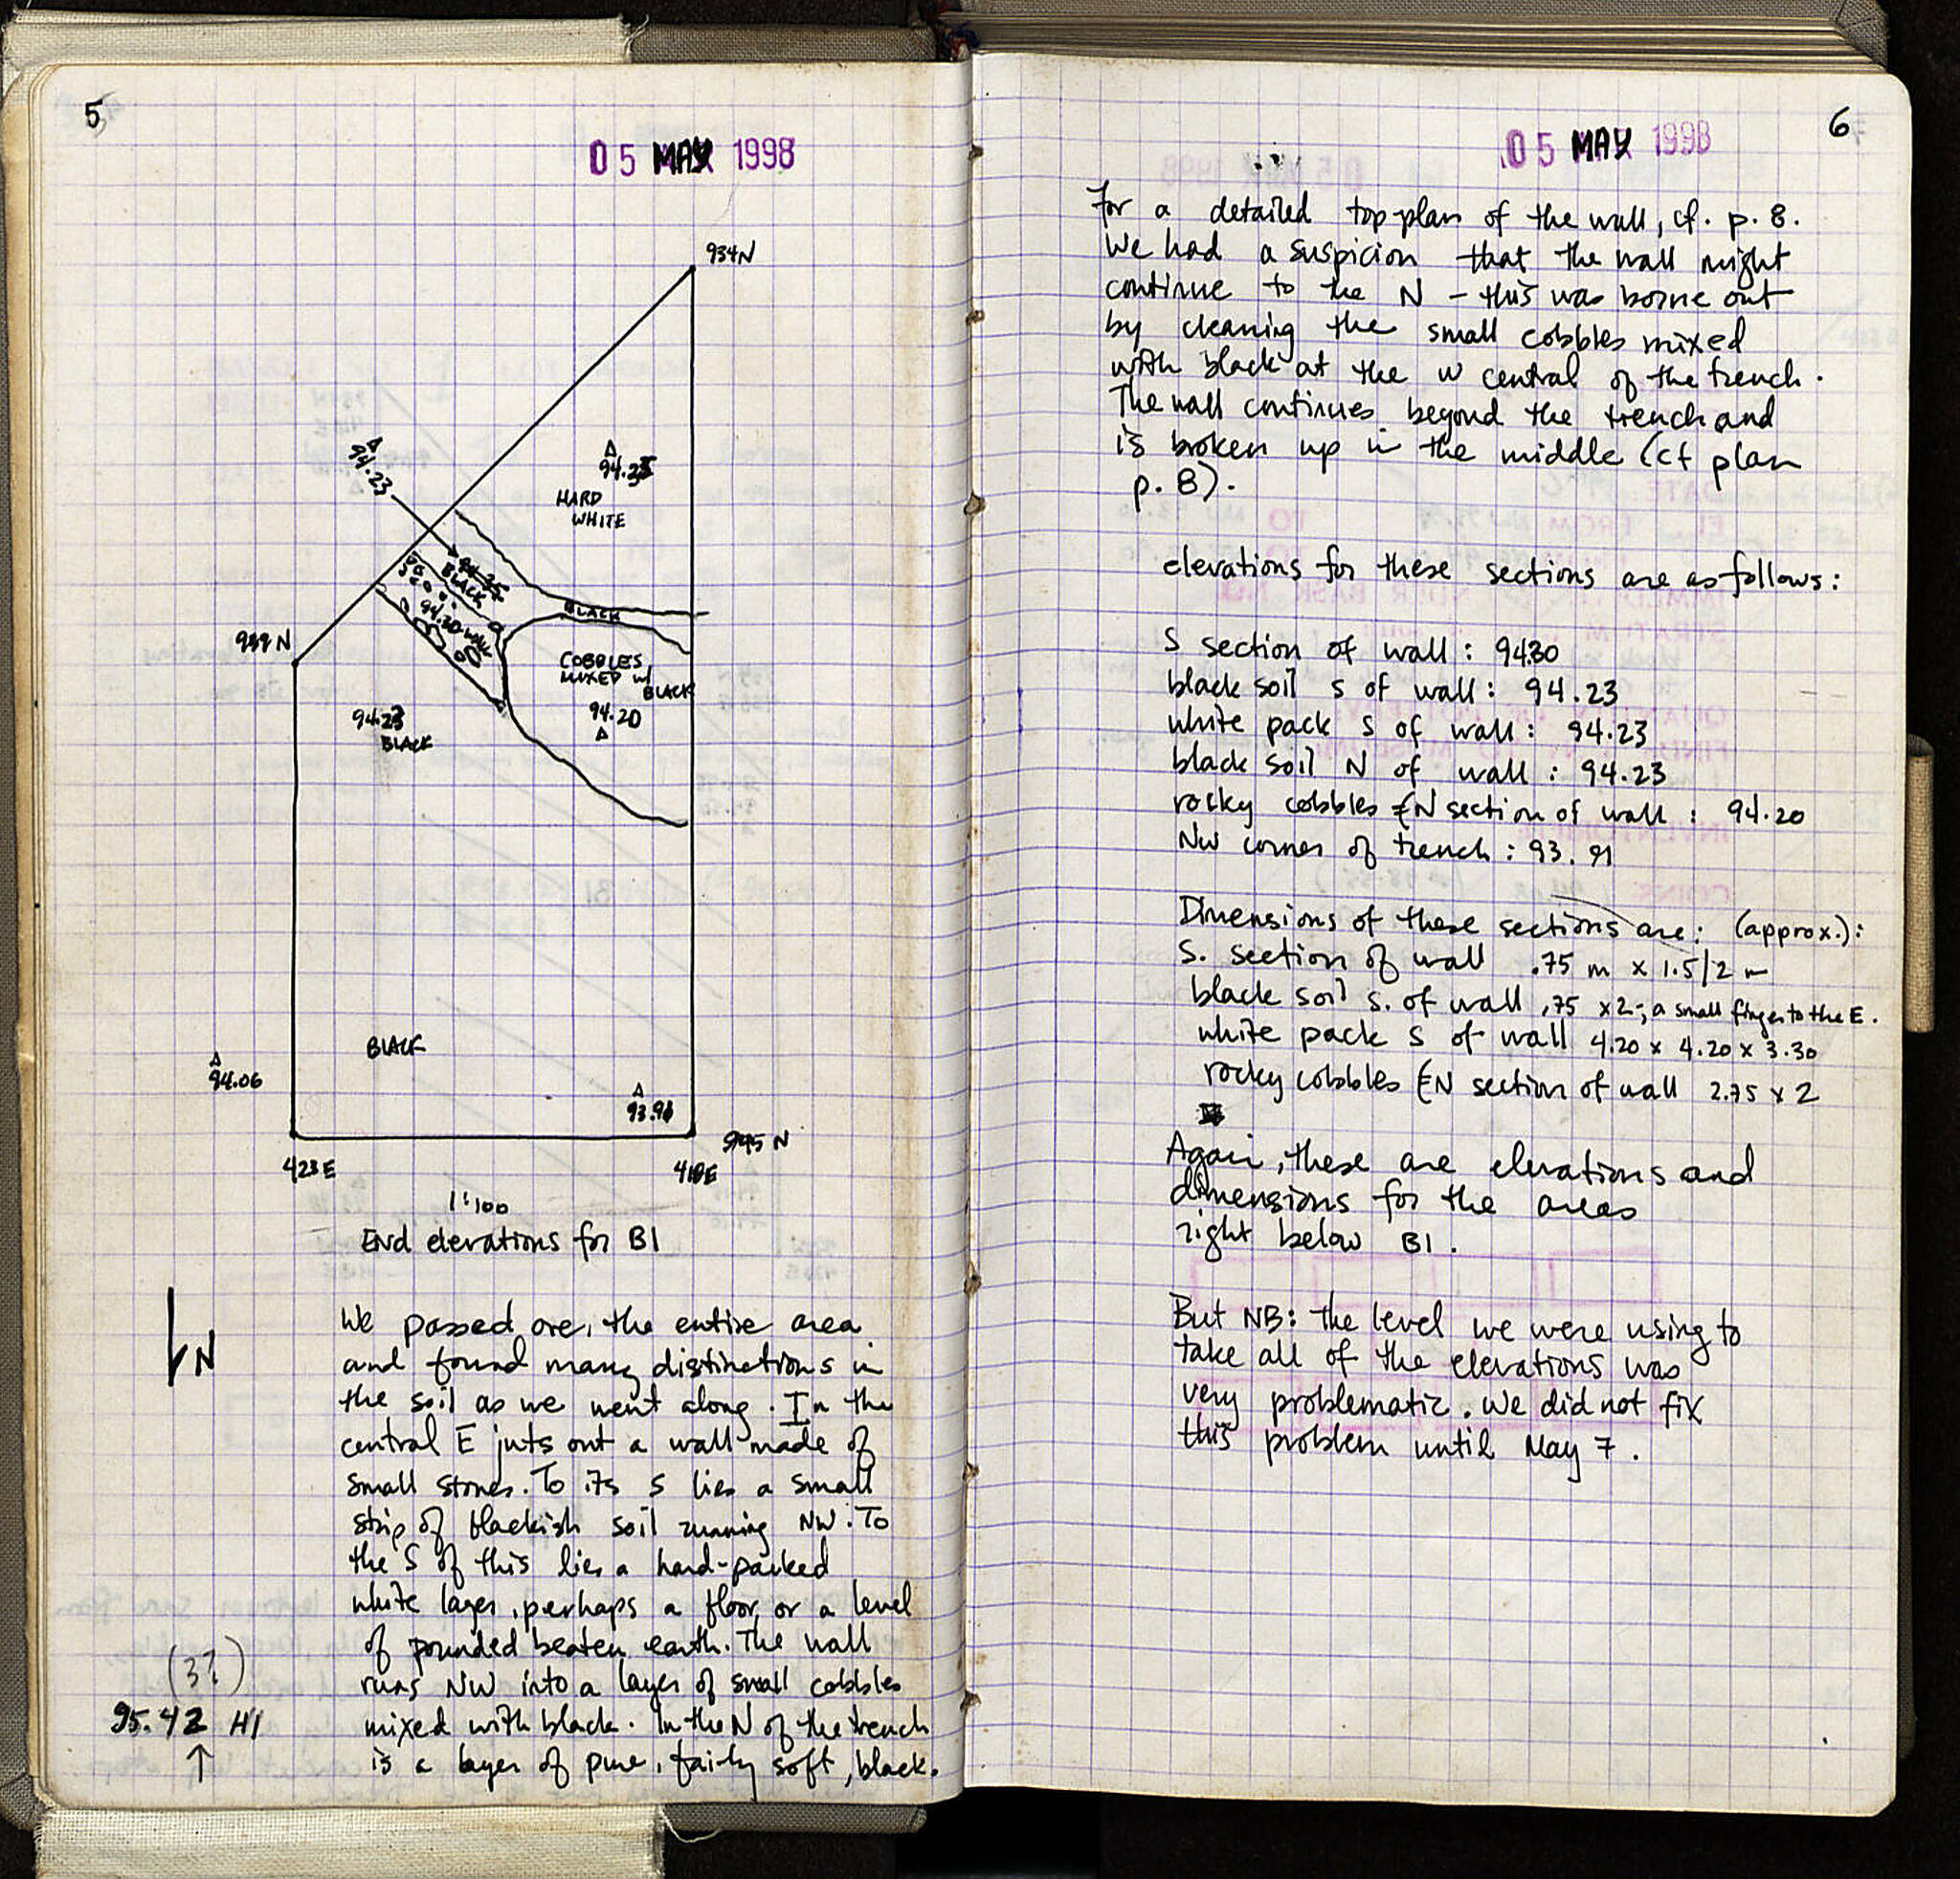 5
05 MAY 1998
934N
94.23
94.23
HARD
WHITE
BLACK
BLACK
94.30 WALL
939 N
COBBLES
MIXED w/
BLACK
94.20
94.23
BLACK
BLACK
94.06
93.91
945 N
423E
418E
1:100
End elevations for B1
N
We passed over the entire area
and found many distinctions in
the soil as we went along. In the
central E juts out a wall made of
small stones. To its S lies a small
strip of blackish soil running NW. To
the S of this lies a hard-packed
white layer, perhaps a floor or a level
of pounded beaten earth. The wall
runs NW into a layer of small cobbles
mixed with black. In the N of the trench
is a layer of pure, fairly soft, black.
(3?)
95.42 HI
6
05 MAY 1998
For a detailed top plan of the wall, cf. p. 8.
We had a suspicion that the wall might
continue to the N - this was borne out
by cleaning the small cobbles mixed
with black at the W central of the trench.
The wall continues beyond the trench and
is broken up in the middle (cf plan
p. 8).
elevations for these sections are as follows:
S section of wall: 94.30
black soil S of wall: 94.23
white pack S of wall: 94.23
black soil N of wall: 94.23
rocky cobbles & N section of wall: 94.20
NW corner of trench: 93.91
Dimensions of these sections are: (approx.):
S. section of wall .75 m x 1.5/2 m
black soil S. of wall .75 x 2-; a small finger to the E.
white pack S of wall 4.20 x 4.20 x 3.30
rocky cobbles & N section of wall 2.75 x 2
Again, these are elevations and
dimensions for the areas
right below B1.
But NB: the level we were using to
take all of the elevations was
very problematic. We did not fix
this problem until May 7.